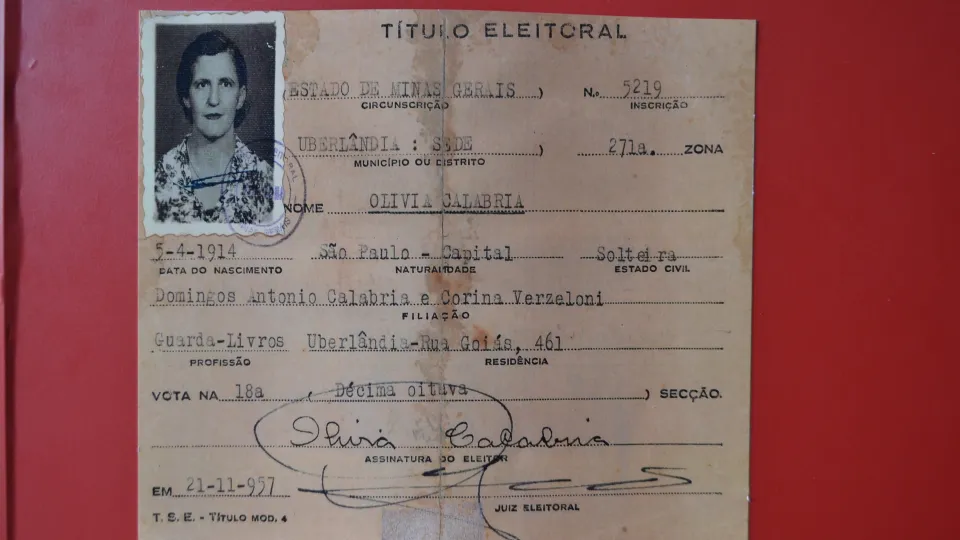 TÍTULO ELEITORAL
(ESTADO DE MINAS GERAIS) N.o 5219
CIRCUNSCRIÇÃO INSCRIÇÃO
UBERLÂNDIA : SEDE ) 271a. ZONA
MUNICÍPIO OU DISTRITO
NOME OLIVIA CALABRIA
5-4-1914 São Paulo - Capital Solteira
DATA DO NASCIMENTO NATURALIDADE ESTADO CIVIL
Domingos Antonio Calabria e Corina Verzeloni
FILIAÇÃO
Guarda-Livros Uberlândia-Rua Goiás, 461
PROFISSÃO RESIDÊNCIA
VOTA NA 18a ( Décima oitava ) SECÇÃO.
Olivia Calabria
ASSINATURA DO ELEITOR
EM 21-11-957
JUIZ ELEITORAL
T. S. E. - TÍTULO MOD. 4